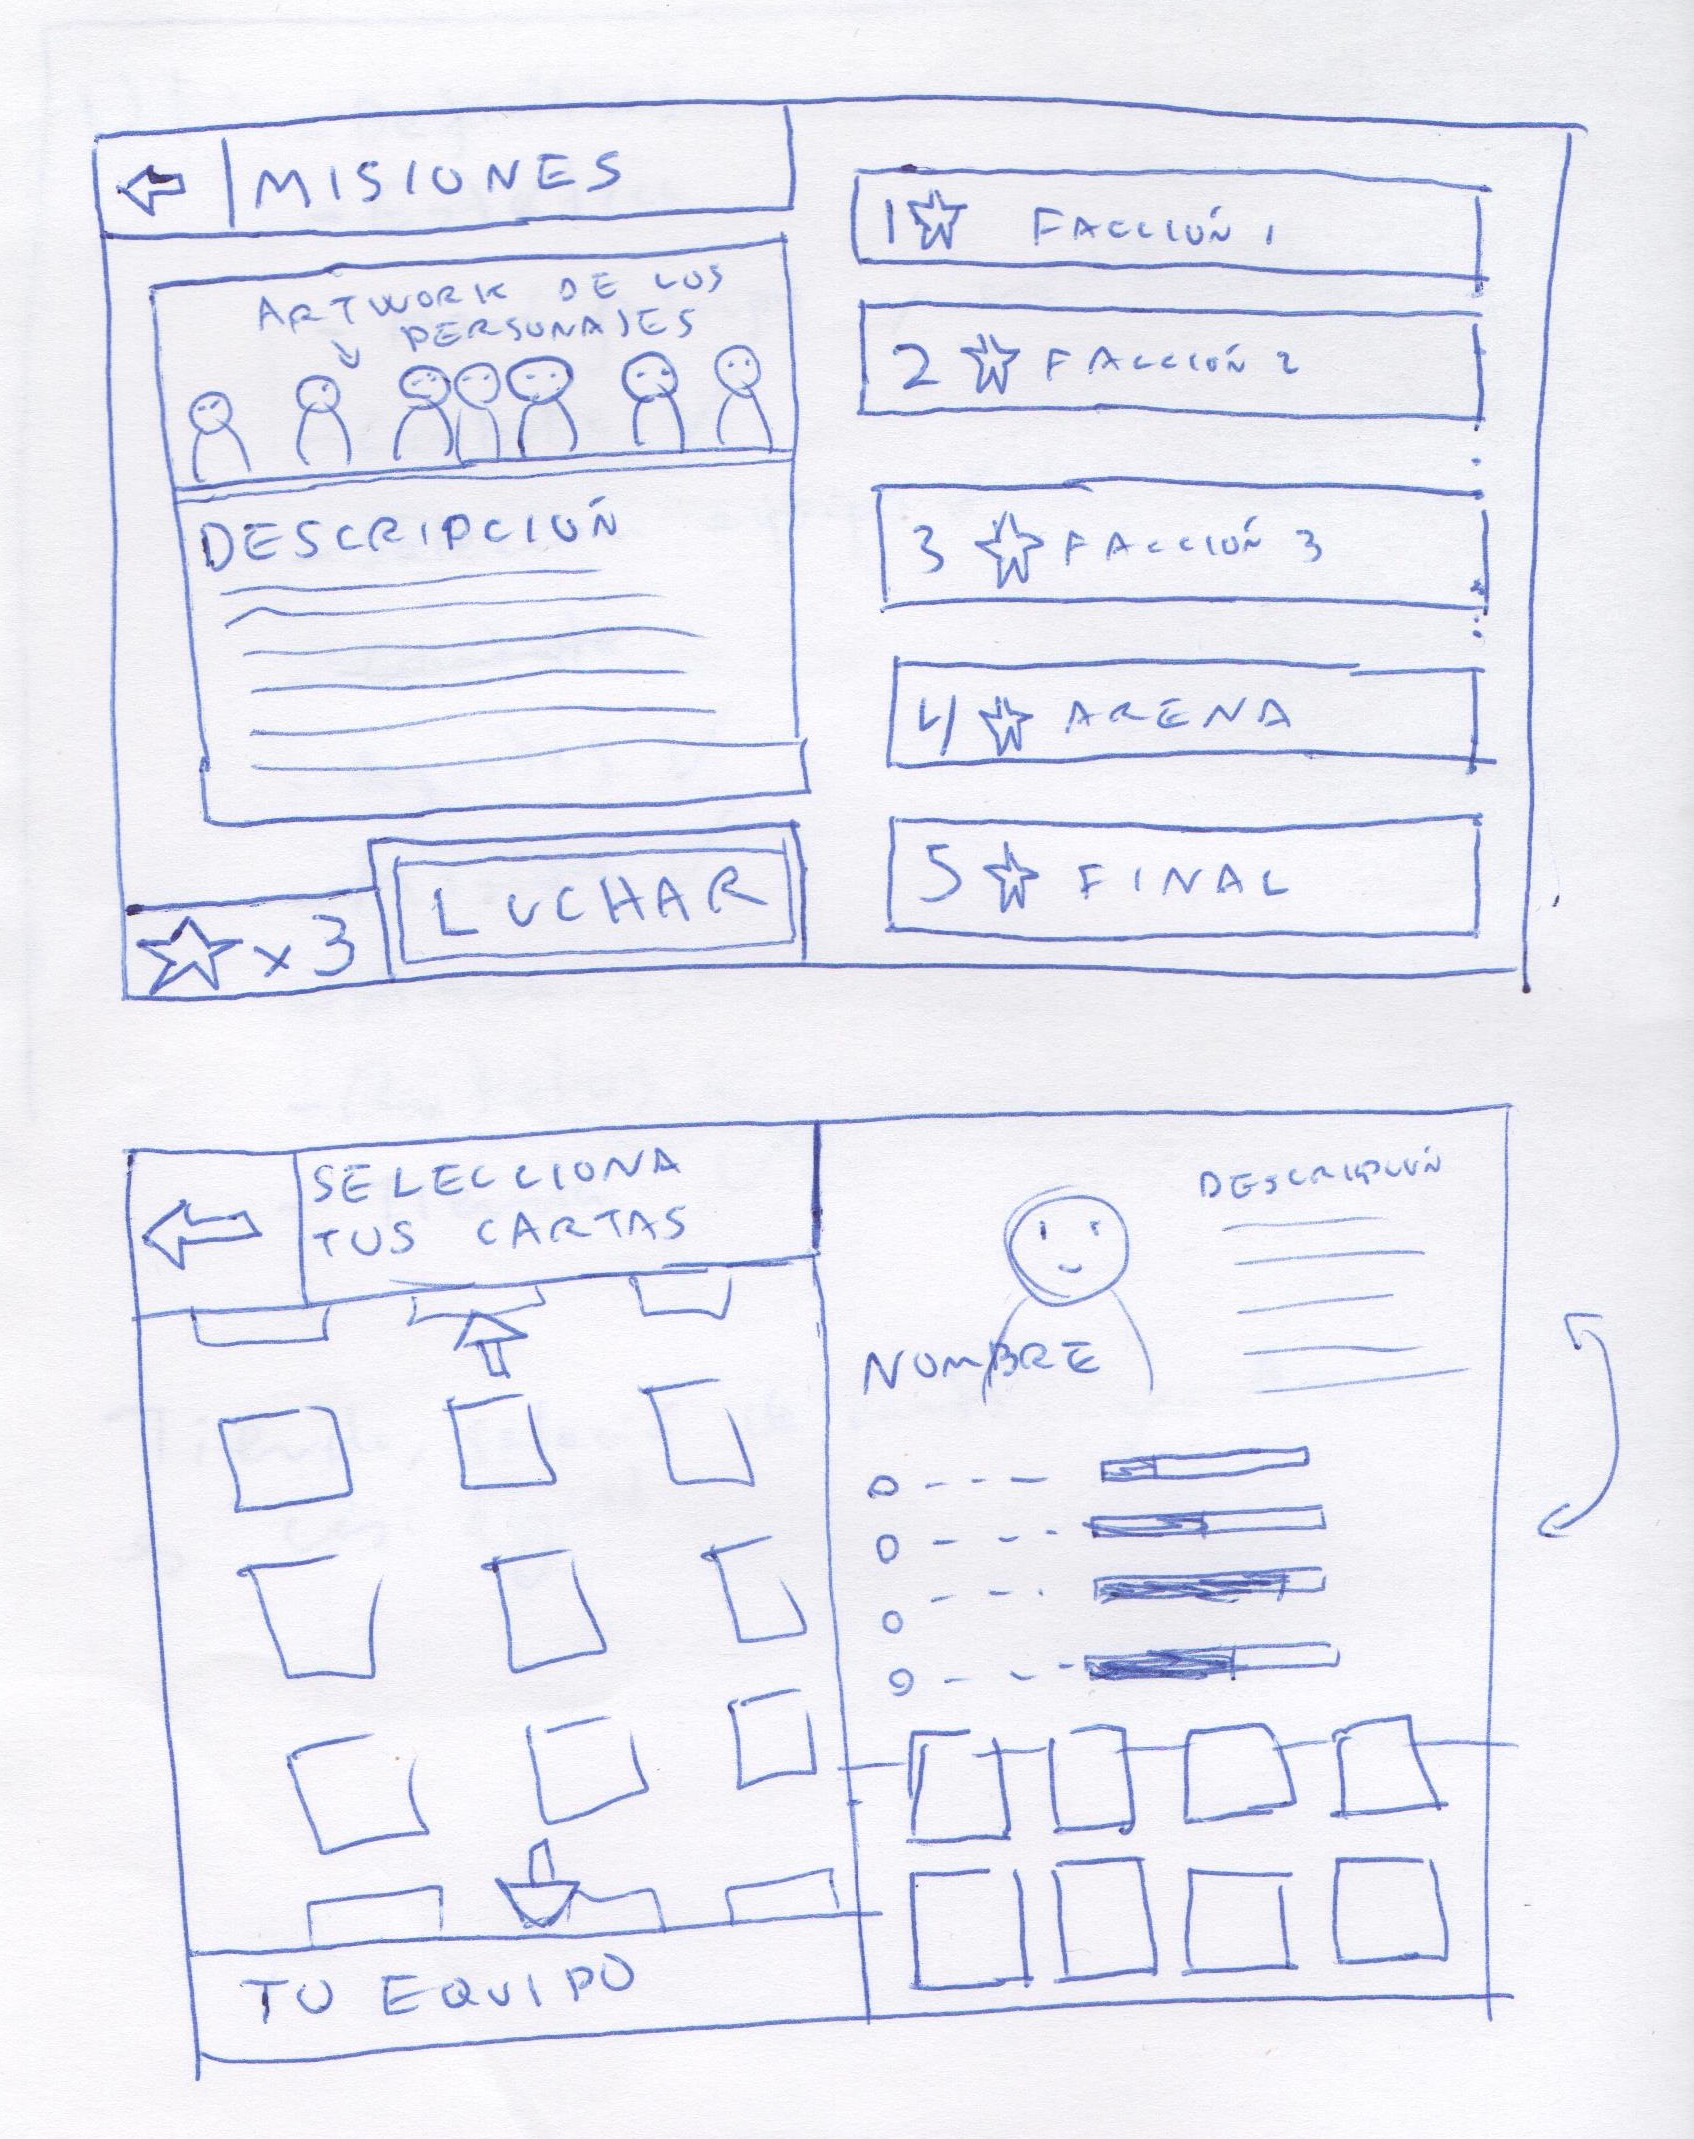 MISIONES
ARTWORK DE LOS
PERSONAJES
DESCRIPCIÓN
x3
LUCHAR
1 FACCIÓN 1
2 FACCIÓN 2
3 FACCIÓN 3
4 ARENA
5 FINAL
SELECCIONA
TUS CARTAS
TU EQUIPO
DESCRIPCIÓN
NOMBRE